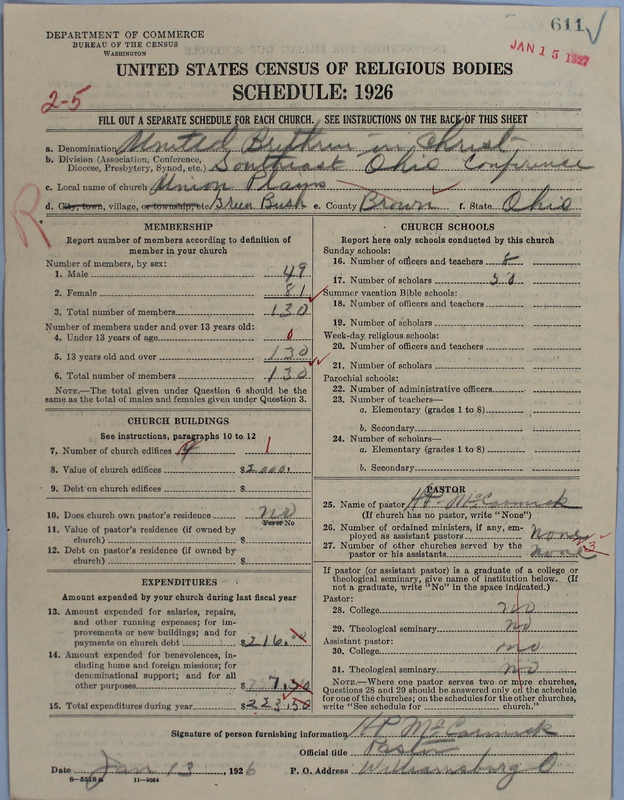 611
DEPARTMENT OF COMMERCE
BUREAU OF THE CENSUS
WASHINGTON
JAN 15 1927
UNITED STATES CENSUS OF RELIGIOUS BODIES
SCHEDULE: 1926
2-5
FILL OUT A SEPARATE SCHEDULE FOR EACH CHURCH. SEE INSTRUCTIONS ON THE BACK OF THIS SHEET
a. Denomination United Brethren in Christ
b. Division (Association, Conference, Diocese, Presbytery, Synod, etc.) Southeast Ohio Conference
c. Local name of church Union Plains
d. City, town, village, or township, etc. Green Bush e. County Brown f. State Ohio
R
MEMBERSHIP
Report number of members according to definition of
member in your church
Number of members, by sex:
1. Male 49
2. Female 81
3. Total number of members 130
Number of members under and over 13 years old:
4. Under 13 years of age 0
5. 13 years old and over 130
6. Total number of members 130
NOTE.—The total given under Question 6 should be the
same as the total of males and females given under Question 3.
CHURCH BUILDINGS
See instructions, paragraphs 10 to 12
7. Number of church edifices 1
8. Value of church edifices $2000.
9. Debt on church edifices $
10. Does church own pastor's residence no
Yes or No
11. Value of pastor's residence (if owned by
church) $
12. Debt on pastor's residence (if owned by
church) $
EXPENDITURES
Amount expended by your church during last fiscal year
13. Amount expended for salaries, repairs,
and other running expenses; for im-
provements or new buildings; and for
payments on church debt $216.00
14. Amount expended for benevolences, in-
cluding home and foreign missions; for
denominational support; and for all
other purposes $ 7.50
15. Total expenditures during year $223.50
CHURCH SCHOOLS
Report here only schools conducted by this church
Sunday schools:
16. Number of officers and teachers 8
17. Number of scholars
Summer vacation Bible schools:
18. Number of officers and teachers
19. Number of scholars
Week-day religious schools:
20. Number of officers and teachers
21. Number of scholars
Parochial schools:
22. Number of administrative officers
23. Number of teachers—
a. Elementary (grades 1 to 8)
b. Secondary
24. Number of scholars—
a. Elementary (grades 1 to 8)
b. Secondary
PASTOR
25. Name of pastor HP McCormick
(If church has no pastor, write "None")
26. Number of ordained ministers, if any, em-
ployed as assistant pastors none
27. Number of other churches served by the
pastor or his assistants none 3
If pastor (or assistant pastor) is a graduate of a college or
theological seminary, give name of institution below. (If
not a graduate, write "No" in the space indicated.)
Pastor:
28. College no
29. Theological seminary no
Assistant pastor:
30. College no
31. Theological seminary no
NOTE.—Where one pastor serves two or more churches,
Questions 28 and 29 should be answered only on the schedule
for one of the churches; on the schedules for the other churches,
write "See schedule for church."
Signature of person furnishing information HP McCormick
Official title Pastor
Date Jan 13, 1926 P. O. Address Williamsburg O
8-5518a 11-9054